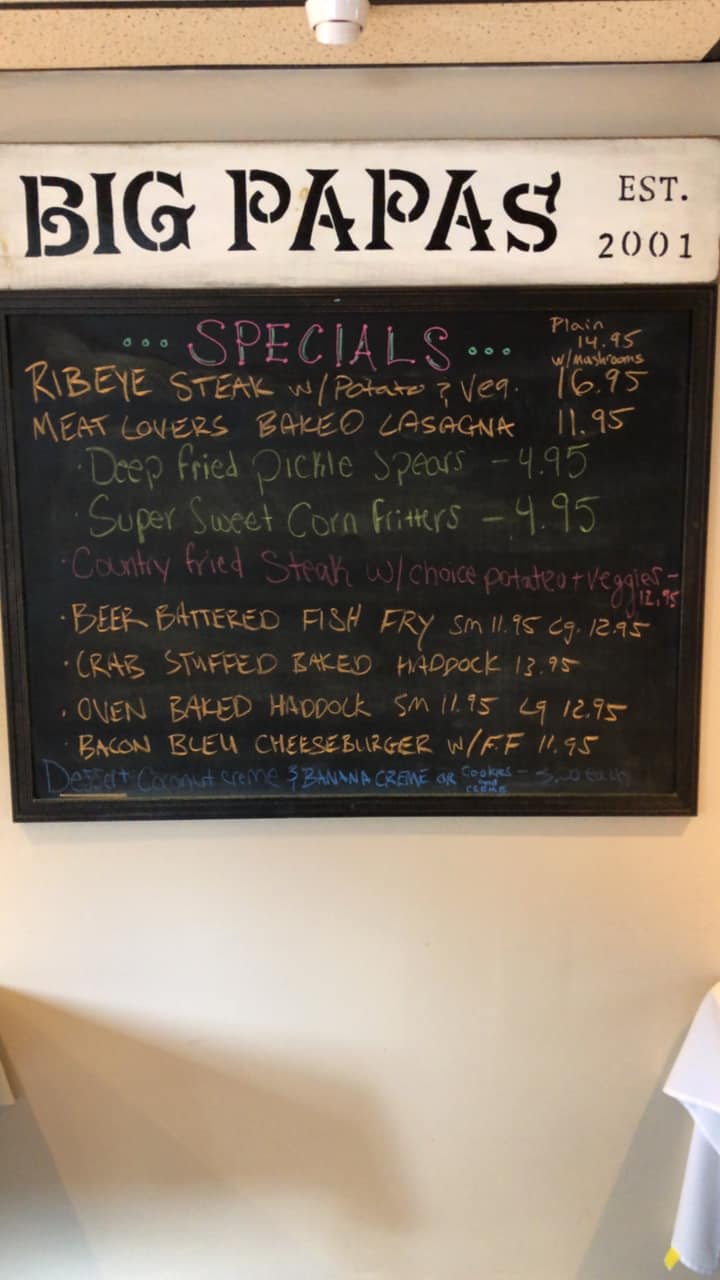 BIG PAPAS EST.
2001
... SPECIALS ...
Plain
14.95
w/Mushrooms
RIBEYE STEAK w/Potato & Veg. 16.95
MEAT LOVERS BAKED LASAGNA 11.95
· Deep fried pickle Spears - 4.95
· Super Sweet Corn fritters - 4.95
· Country fried Steak w/choice potato + Veggies -
12.95
· BEER BATTERED FISH FRY Sm 11.95 Lg. 12.95
· CRAB STUFFED BAKED HADDOCK 13.95
· OVEN BAKED HADDOCK SM 11.95 Lg 12.95
· BACON BLEU CHEESEBURGER W/F.F 11.95
Dessert Coconut creme & BANANA CREME OR Cookies and CREME - each